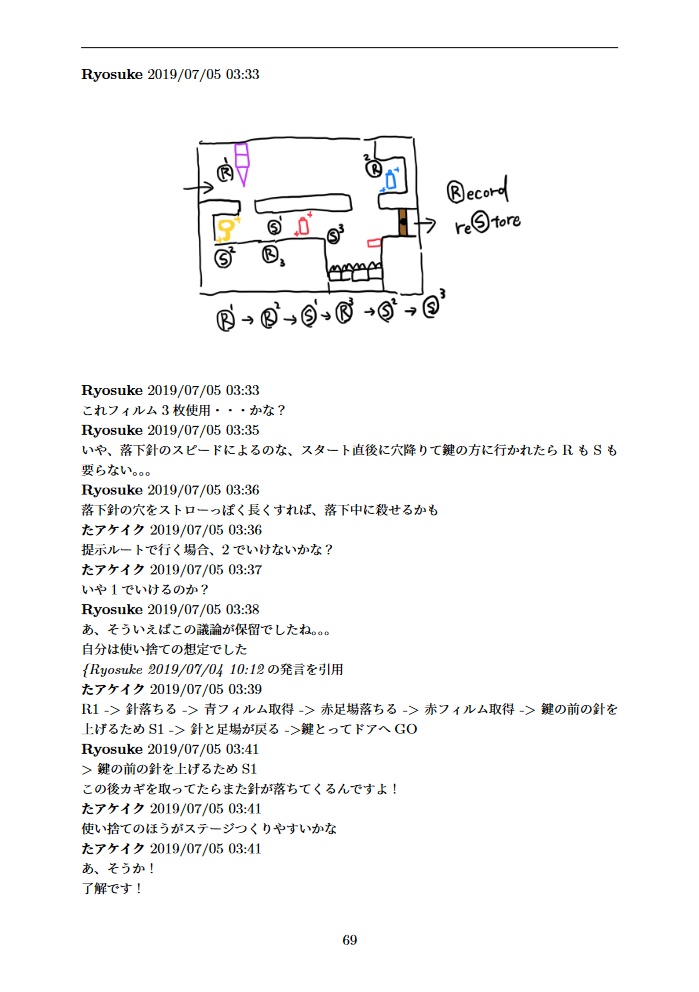 Ryosuke 2019/07/05 03:33
R1
2R
Record
reStore
S1
S3
S2
R3
R1 → R2 → S1 → R3 → S2 → S3
Ryosuke 2019/07/05 03:33
これフィルム 3 枚使用・・・かな？
Ryosuke 2019/07/05 03:35
いや、落下針のスピードによるのな、スタート直後に穴降りて鍵の方に行かれたら R も S も
要らない。。。
Ryosuke 2019/07/05 03:36
落下針の穴をストローっぽく長くすれば、落下中に殺せるかも
たアケイク 2019/07/05 03:36
提示ルートで行く場合、2 でいけないかな？
たアケイク 2019/07/05 03:37
いや 1 でいけるのか？
Ryosuke 2019/07/05 03:38
あ、そういえばこの議論が保留でしたね。。。
自分は使い捨ての想定でした
{Ryosuke 2019/07/04 10:12 の発言を引用
たアケイク 2019/07/05 03:39
R1 -> 針落ちる -> 青フィルム取得 -> 赤足場落ちる -> 赤フィルム取得 -> 鍵の前の針を
上げるため S1 -> 針と足場が戻る ->鍵とってドアへ GO
Ryosuke 2019/07/05 03:41
> 鍵の前の針を上げるため S1
この後カギを取ってたらまた針が落ちてくるんですよ！
たアケイク 2019/07/05 03:41
使い捨てのほうがステージつくりやすいかな
たアケイク 2019/07/05 03:41
あ、そうか！
了解です！
69